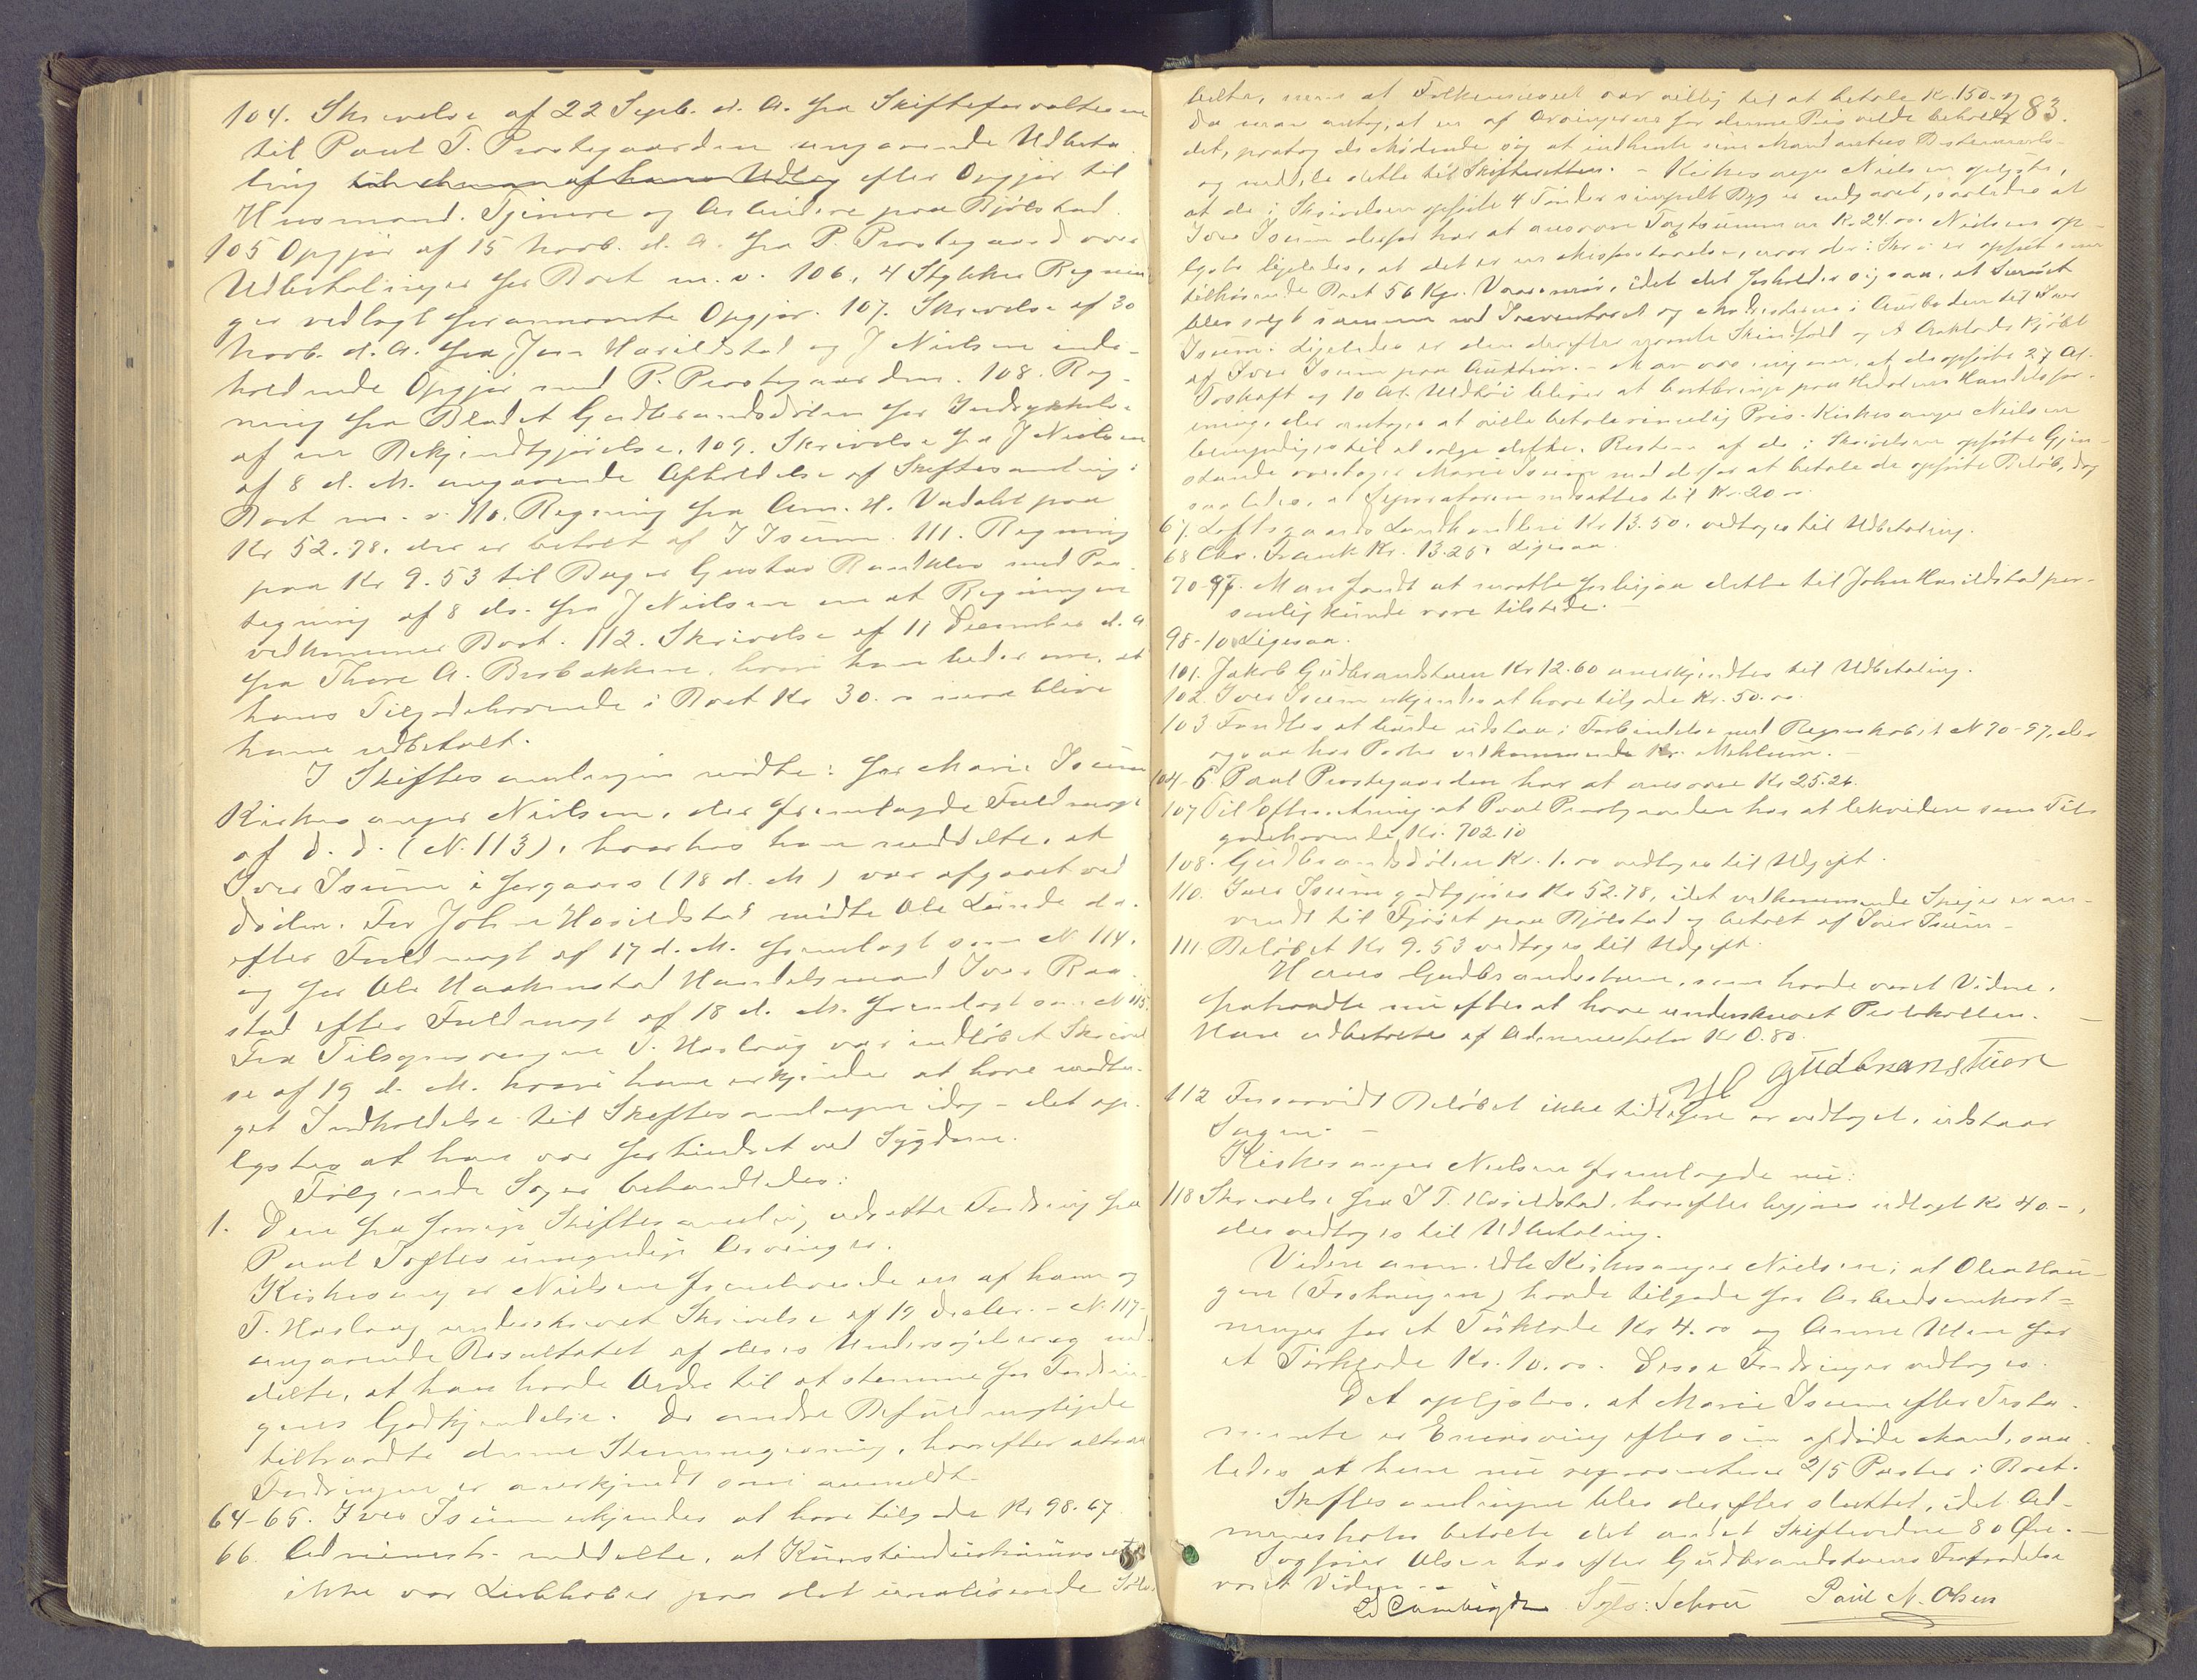 104. Skrivelse af 22 Septb. d. A. fra Skifteforvalteren
til Paul T. Prestegaarden angaaende Udbeta-
ling efter Opgjør til
Husmænd. Tjenere og Arbeidere paa Bjølstad.
105 Opgjør af 15 Novb. d. A. fra P. Prestegaard over
Udbetalinger for Boet m. v. 106. 4 Stykker Regnin-
ger vedlagt forannævnte Opgjør. 107. Skrivelse af 30
Novb. d. A. fra John Harildstad og J Nielsen inde-
holdende Opgjør med P. Prestegaarden. 108. Reg-
ning fra Bladet Gudbrandsdølen for Indrykkelse
af en Bekjendtgjørelse. 109. Skrivelse fra J Nielsen
af 8 d. M. angaaende Afholdelse af Skiftesamling i
Boet m. v. 110. Regning fra Am. H. Vadahl paa
Kr 52.78. der er betalt af I Isum. 111. Regning
paa Kr 9.53 til Bager Gustav Randklev med Paa-
tegning af 8 ds. fra J Nielsen om at Regningen
vedkommer Boet. 112. Skrivelse af 11 December d. A
fra Thore A. Brobakken, hvori han beder om, at
hans Tilgodehavende i Boet Kr 30.00 maa blive
ham udbetalt.
I Skiftesamlingen mødte: For Marie Isum
Kirkesanger Nielsen, der fremlagde Fuldmagt
af d. d. (N. 113), hvorhos han meddelte, at
Iver Isum i forgaars (18 d. M) var afgaaet ved
døden. For John Harildstad mødte Ole Lunde
efter Fuldmagt af 17 d. M. fremlagt som N 114.
og for Ole Haakenstad Handelsmand Iver Raa-
stad efter Fuldmagt af 18 d. M. fremlagt som N 115.
Fra Tilsynsmanden T. Haslaug var indløbet Skrivel-
se af 19 d. M. hvori han erkjender at have modta-
get Indkaldelse til Skiftesamlingen idag – det op-
lystes at han var forhindret ved Sygdom.
Følgende Sager behandledes:
1. Den fra forrige Skiftesamling udsatte Fordring fra
Paul Toftes umyndige Arvinger.
Kirkesanger Nielsen fremlagde en af ham og
T. Haslaug underskrevet Skrivelse af 19 dsaler. – N. 117 –
angaaende Resultatet af deres Undersøgelser og med-
delte, at han havde Ordre til at stemme for Fordrin-
gens Godkjendelse. De andre Befuldmægtigede
tiltraadte denne Stemmegivning, hvorefter altsaa
Fordringen er anerkjendt som anmeldt.
64-65. Iver Isum erkjendes at have tilgode Kr 98.67.
66. Administr. meddelte, at Kunstindustrimuseet
ikke var Liebhaber paa det
belte, mens at Folkemuseet var villig til at betale Kr. 150. og
83.
da man antog, at en af Arvingerne for denne Pris vilde beholde
det, paatog de Mødende sig at indhente sine Mandanters Bestemmelse
og meddele dette til Skifteretten. – Kirkesanger Nielsen oplyste,
at de i Skrivelsen opførte 4 Tønder simpelt Byg er, saaledes at
Iver Isum derfor har at ansvare Taxtsummen Kr. 24.00. Nielsen op-
lyste ligeledes, at det er en Misforstaaelse, naar der i Skr. er opført som
tilhørende Boet 56 Kgr. Vaarsmør, idet det forholder sig saa, at Smøret
blev solgt sammen med Inventaret og i Aarboden til Iver
Isum. Ligeledes er den derefter nævnte Skinfeld og et Aaklæde kjøbt
af Iver Isum paa Auktion. – Man var enig om, at de opførte 27 Al.
og 10 Al. bliver at
der antages at ville betale rimelig Pris. Kirkesanger Nielsen
bemyndiges til at sælge dette. Resten af de i Skrivelsen opførte Gjen-
stande overtager Marie Isum mod derfor at betale de opførte Beløb, dog
saaledes, at Separatoren nedsættes til Kr. 20.00.
67. Loftsgaards Landhandleri Kr 13.50. vedtages til Udbetaling.
68 Chr. Frank Kr. 13.25. Ligesaa.
70-97. Man fandt at maatte forbigaa dette til John Harildstad per-
sonlig kunde være tilstede. –
98-100 Ligesaa.
101. Jakob Gudbrandstuen Kr 12.60 anerkjendtes til Udbetaling.
102. Iver Isum erkjendes at have tilgode Kr. 50.00.
103 Fandtes at burde udstaa i Forbindelse med Regnskabet N 70-97, der
ogsaa har Poster vedkommende Mehlum. –
104-6 Paul Prestegaarden har at ansvare Kr 25.26.
107 Til Efterretning at Paul Prestgaarden har at lekvidere sem Til-
godehavende Kr. 702.10
108. Gudbrandsdølen Kr. 1.00 vedtages til Udgift.
110. Iver Isum godtgjøres Kr 52.78, idet vedkommende Spiger er an-
vendt til Fjøset paa Bjølstad og betalt af Iver Isum –
111 Beløbet Kr 9.53 vedtages til Udgift.
Hans Gudbrandsstuen, som havde været Vidne,
fratraadte nu efter at have underskrevet Protokollen.
Ham udbetaltes af Administrator Kr 0.80.
H Gudbranstuen
112 Forsaavidt Beløbet ikke tidligere er vedtaget, udstaar
Sagen. –
Kirkesanger Nielsen fremlagde nu:
118 Skrivelse fra J T. Harildstad, hvorefter begjæres udlagt Kr 40.–,
der vedtages til Udbetaling.
Videre anmeldte Kirkesanger Nielsen, at Olea Hau-
gen (Forhaugen) havde tilgode for Arbeidsomkost-
ninger for et Tørklæde Kr 4.00 og Anne Ulen for
et Tørklæde Kr. 10.00. Disse Fordringer vedtages.
Det oplystes, at Marie Isum efter Testa-
mente er Enearving efter sin afdøde Mand, saa-
ledes at hun nu repræsenterer 2/5 Parter i Boet.
Skiftesamlingen blev derefter sluttet, idet Ad-
ministrator betalte det andet Skiftevidne 80 Øre. –
Sagfører Olsen har efter Gudbrandstuens Fratrædelse
været Vidne. –
Paul N. Olsen